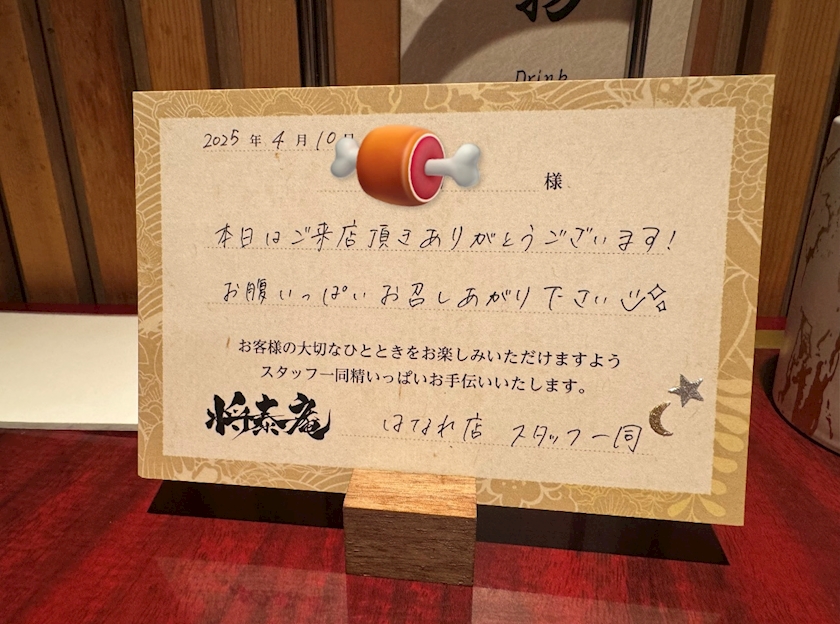 物
Drink
2025年4月10日
様
本日はご来店頂きありがとうございます!
お腹いっぱいお召しあがり下さい
お客様の大切なひとときをお楽しみいただけますよう
スタッフ一同精いっぱいお手伝いいたします。
将泰庵 はなれ店 スタッフ一同